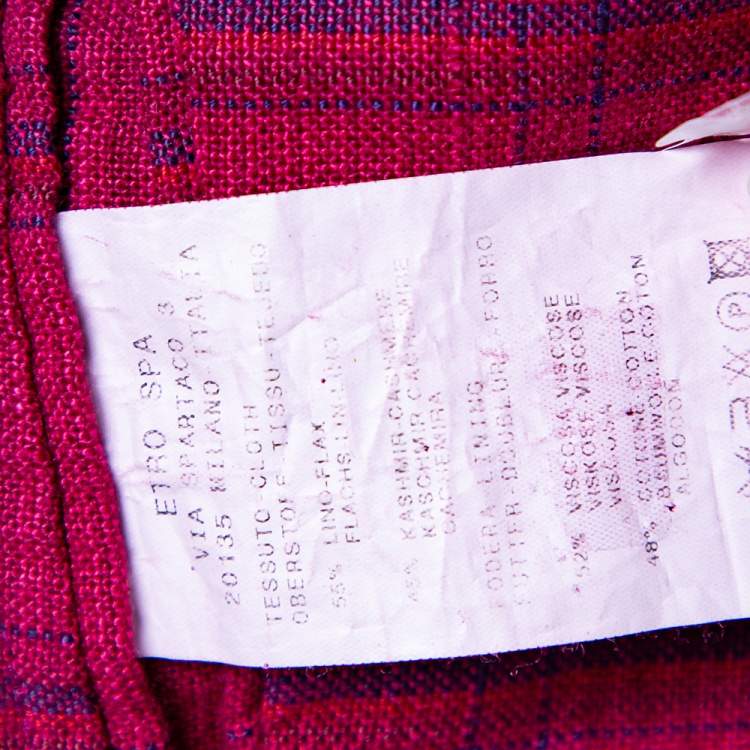 ETRO SPA
VIA SPARTACO 3
20135 MILANO ITALIA
TESSUTO-CLOTH
OBERSTOFF-TISSU-TEJIDO
55% LINO-FLAX
FLACHS-LIN-LINO
45% KASHMIR-CASHMERE
KASCHMIR-CACHEMIRE
CACHEMIRA
FODERA-LINING
FUTTER-DOUBLURE-FORRO
52% VISCOSA VISCOSE
VISKOSE VISCOSE
VISCOSA
48% COTONE COTTON
BAUMWOLLE COTON
ALGODON
P